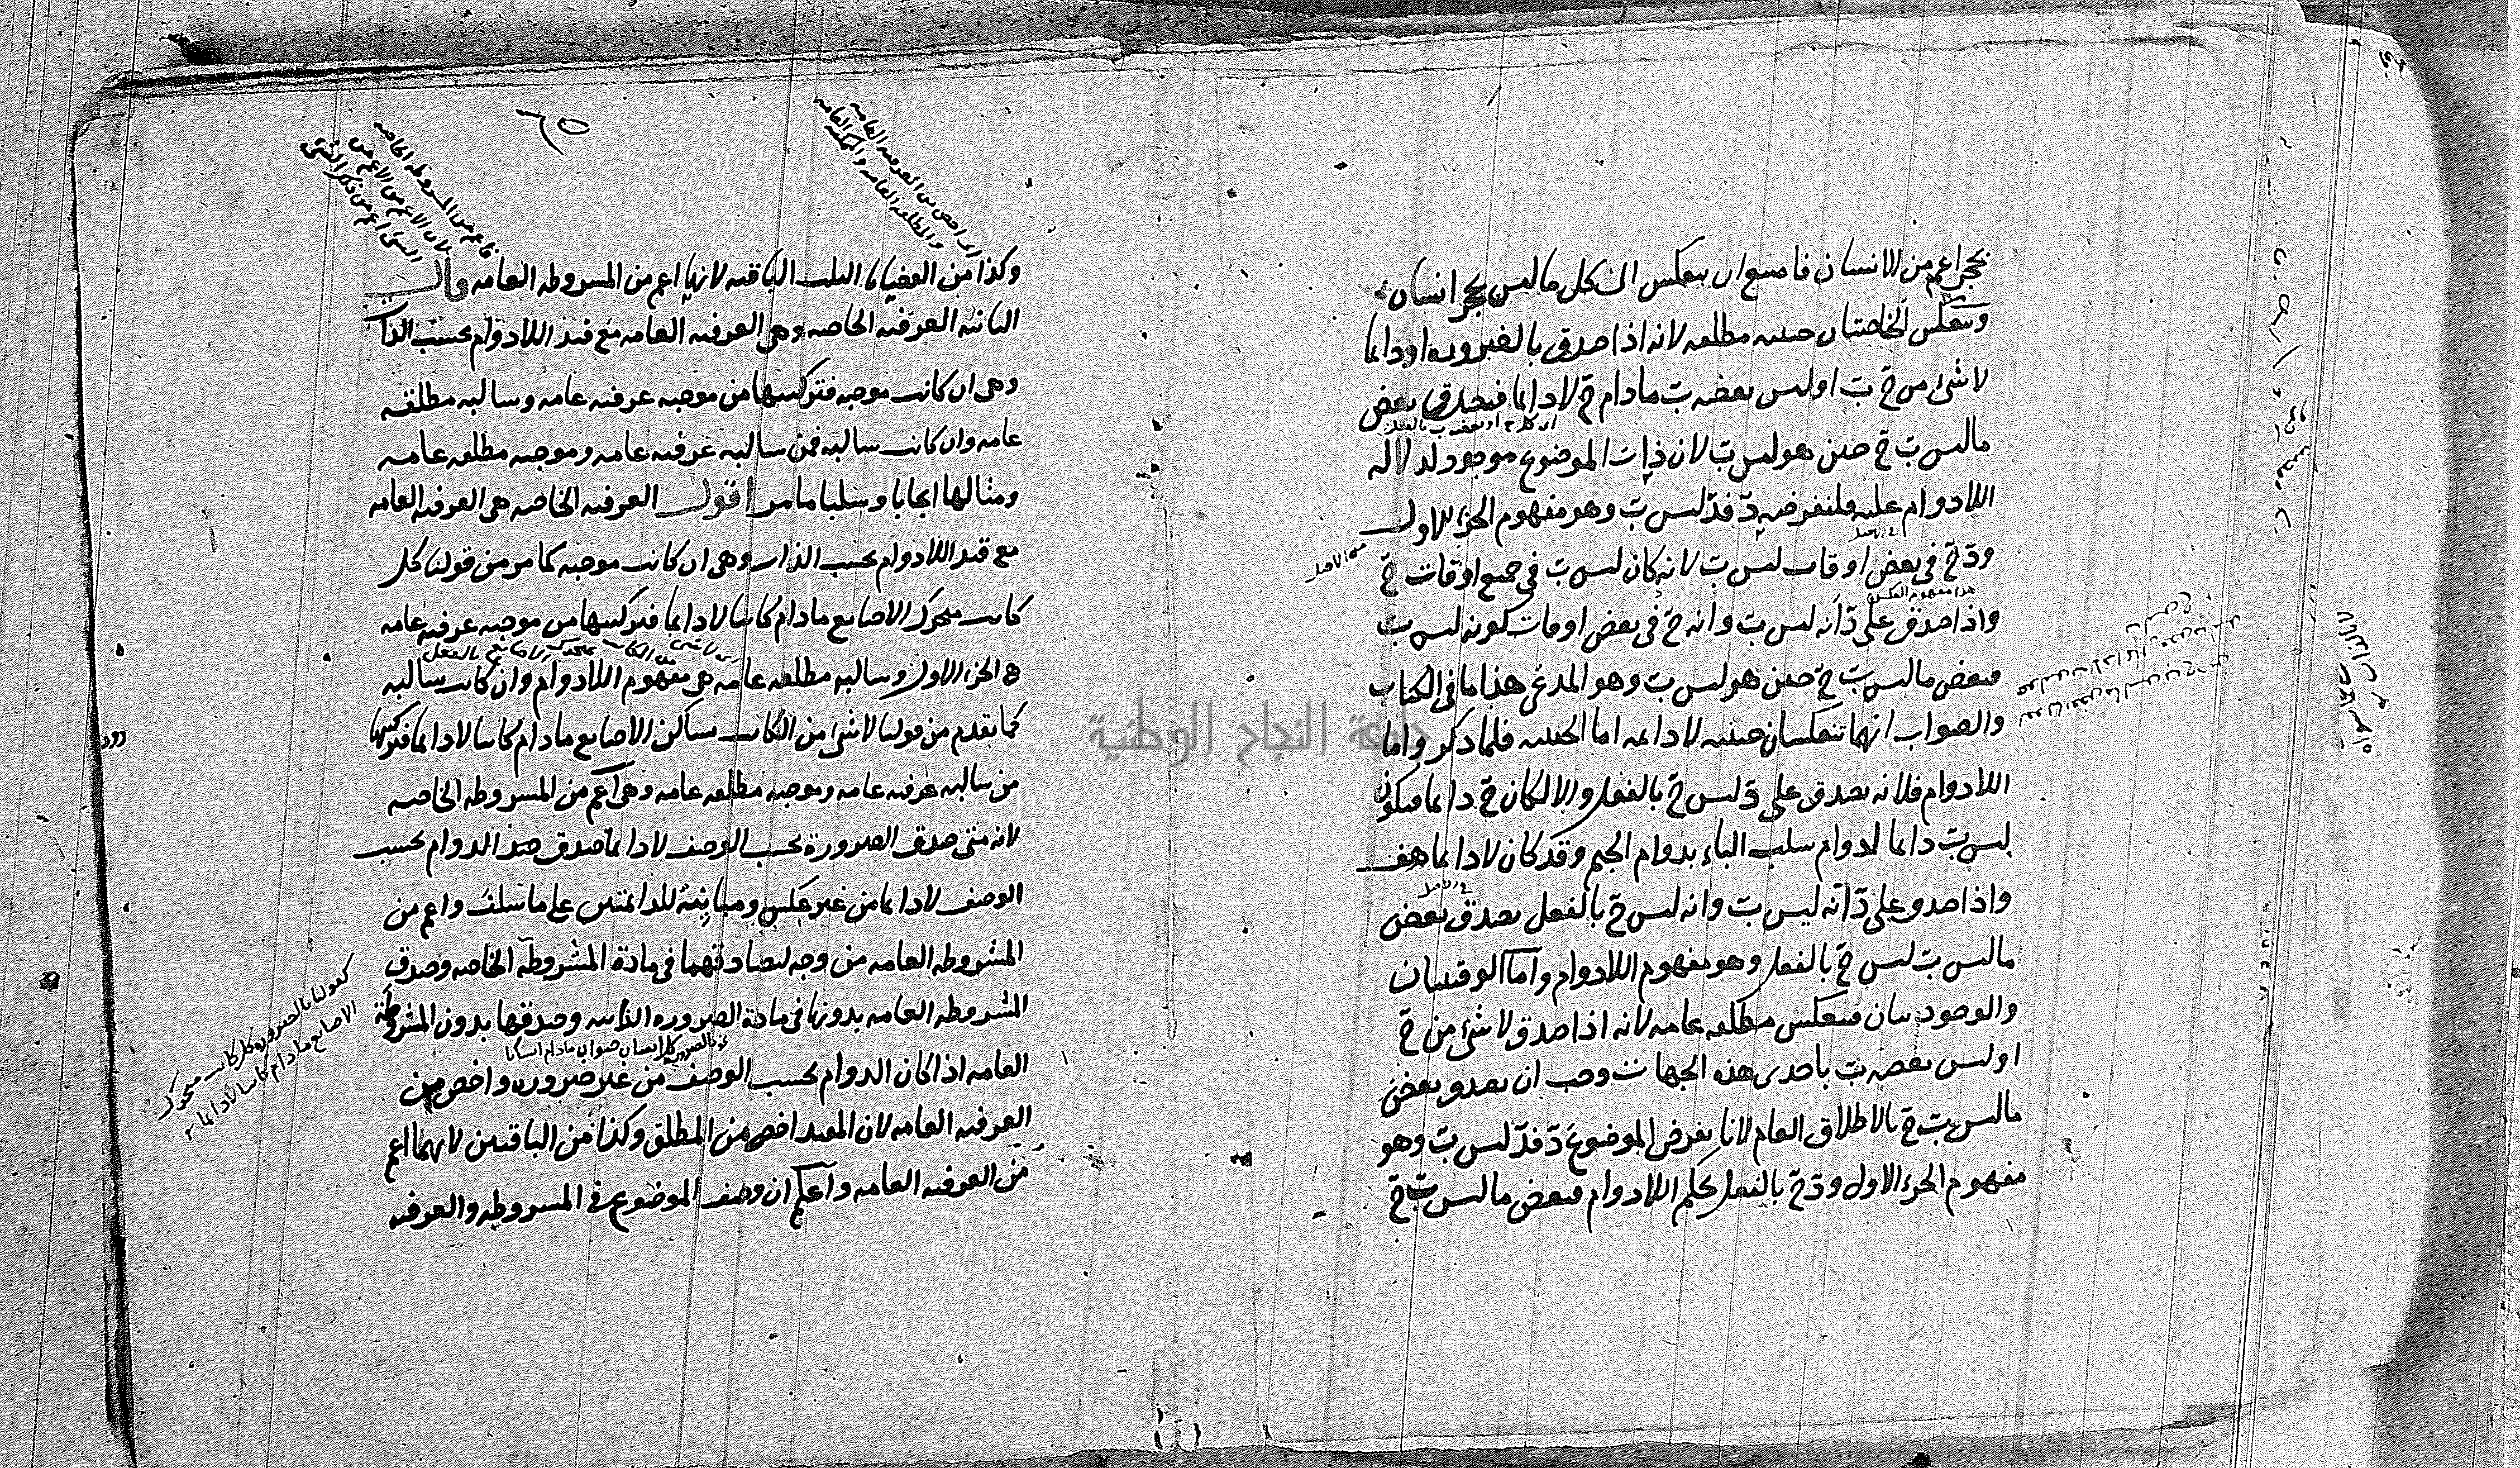 بحجر اعم من الانسان فامتنع ان ينعكس الى كل ما ليس بحجر انسان
وينعكس الخاصتان حينيه مطلقه لانه اذا صدق بالضروره او دايما
لا شئ من ج ب او ليس بعضه ب مادام ج لا دايما فيصدق بعض
ما ليس ب ج حين هو ليس ب لان ذات الموضوع موجود لدلاله
اللادوام عليه ولنفرضه د فد ليس ب وهو مفهوم الجزء الاول
ود ج في بعض اوقات ليس ب لانه كان ليس ب في جميع اوقات ج
واذا صدق على د انه ليس ب وانه ج في بعض اوقات كونه ليس ب
فبعض ما ليس ب ج حين هو ليس ب وهو المدعى هذا ما في الكتاب
والصواب انهما تنعكسان حينيه لا دايمه اما الحينيه فلما ذكر واما
اللادوام فلانه يصدق على د ليس ج بالفعل والا لكان ج دايما فيكون
ليس ب دايما لدوام سلب الباء بدوام الجيم وقد كان لا دايما هف
واذا صدق على د انه ليس ب وانه ليس ج بالفعل يصدق بعض
ما ليس ب ليس ج بالفعل وهو مفهوم اللادوام واما الوقتيتان
والوجوديتان فينعكس مطلقه عامه لانه اذا صدق لا شئ من ج
او ليس بعضه ب باحدى هذه الجهات وجب ان يصدق بعض
ما ليس ب ج بالاطلاق العام لانا نفرض الموضوع د فد ليس ب وهو
مفهوم الجزء الاول ود ج بالفعل بحكم اللادوام فبعض ما ليس ب ج
جامعة النجاح الوطنية
٦٥
اى اخص من العرفيه العامه
والمطلقه العامه والممكنه العامه
فاعم من المشروطه الخاصه
لان الاعم من الاعم من
الشئ اعم من ذلك الشئ
وكذا من القضايا الثلث الباقيه لانها اعم من المشروطه العامه قال
الثانيه العرفيه الخاصه وهي العرفيه العامه مع قيد اللادوام بحسب الذات
وهي ان كانت موجبه فتركيبها من موجبه عرفيه عامه وسالبه مطلقه
عامه وان كانت سالبه فمن سالبه عرفيه عامه وموجبه مطلقه عامه
ومثالها ايجابا وسلبا ما مر اقول العرفيه الخاصه هي العرفيه العامه
مع قيد اللادوام بحسب الذات وهي ان كانت موجبه كما مر من قولنا كل
كاتب متحرك الاصابع مادام كاتبا لا دايما فتركيبها من موجبه عرفيه عامه
هي الجزء الاول وسالبه مطلقه عامه هي مفهوم اللادوام وان كانت سالبه
كما تقدم من قولنا لا شئ من الكاتب بساكن الاصابع مادام كاتبا لا دايما فتركيبها
من سالبه عرفيه عامه وموجبه مطلقه عامه وهي اعم من المشروطه الخاصه
لانه متى صدق الضرورة بحسب الوصف لا دايما صدق الدوام بحسب
الوصف لا دايما من غير عكس ومباينة للدائمتين على ما سلف واعم من
المشروطه العامه من وجه لتصادقهما في مادة المشروطه الخاصه وصدق
المشروطه العامه بدونها في مادة الضروره الذاتيه وصدقها بدون المشروطة
العامه اذا كان الدوام بحسب الوصف من غير ضروره واخص من
العرفيه العامه لان المقيد اخص من المطلق وكذا من الباقيتين لانهما اعم
من العرفيه العامه واعلم ان وصف الموضوع في المشروطه والعرفيه
كقولنا بالضروره كل كاتب متحرك
الاصابع مادام كاتبا لا دايما